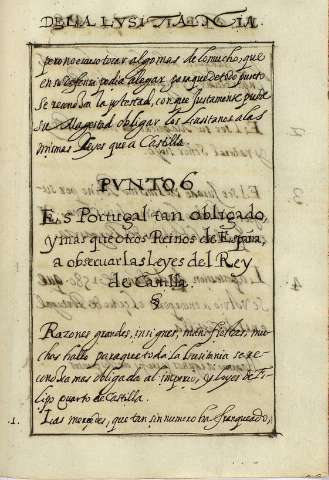 DE LA LUSITANIA.
pero no escuso tocar algo mas de lo mucho, que
en su defensa podia alegar para que de todo punto
se reconosca la potestad, con que justamente puede
su Magestad obligar los Lusitanos a las
mismas leyes que a Castilla.
PUNTO 6
Es Portugal tan obligado,
y mas que otros Reinos de España,
a observar las Leyes del Rey
de Castilla.
§
Razones grandes, insignes, manifiestas, mu-
chas hallo para que toda la Lusitania se re-
conosca mas obligada al imperio, y leyes de Fe-
lipo quarto de Castilla.
1. Las mercedes, que tan sin numero ha franqueado,
2
3
4